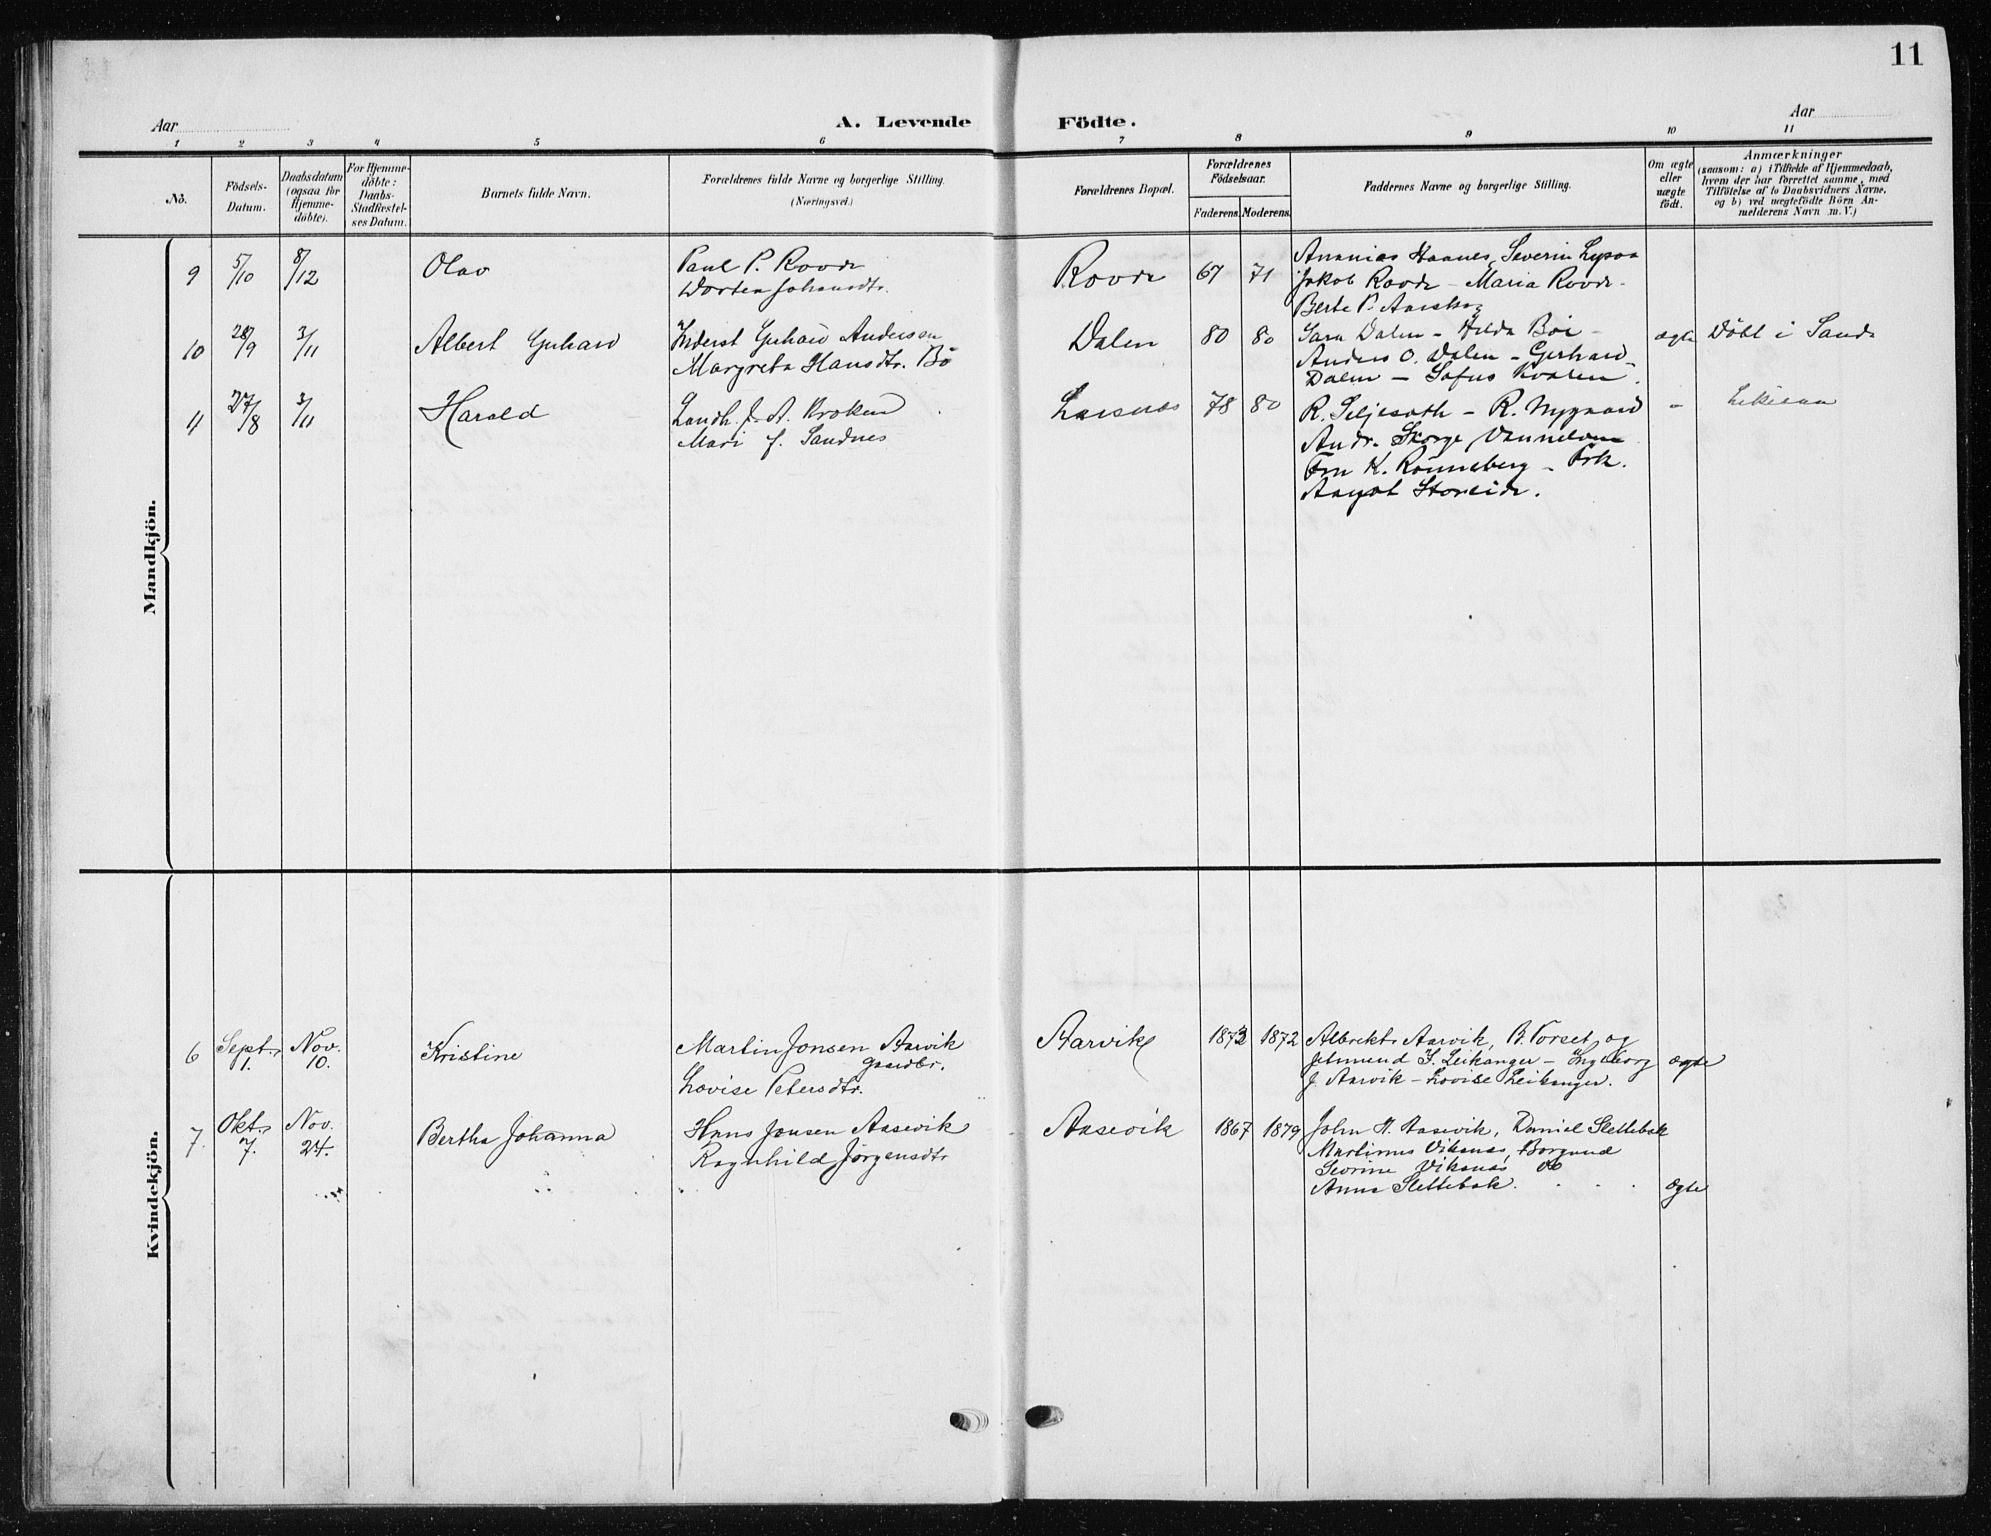 11
Aar
A. Levende Födte.
Aar
1 2 3 4 5 6 7 8 9 10 11
No.
Födsels-
Datum.
Daabsdatum
(ogsaa för
Hjemme-
döbte).
For Hjemme-
döbte:
Daabs-
Stadfæstel-
ses Datum.
Barnets fulde Navn.
Forældrenes fulde Navne og borgerlige Stilling.
(Næringsvei.)
Forældrenes Bopæl.
Forældrenes
Födselsaar.
Faderens. Moderens.
Faddernes Navne og borgerlige Stilling.
Om ægte
eller
uægte
födt.
Anmærkninger
(saasom: a) i Tilfælde af Hjemmedaab,
hvem der har forrettet samme, med
Tilföielse af to Daabsvidners Navne,
og b) ved uægtefödte Börn An-
melderens Navn m. V.)
Mandkjön.
9 5/10 8/12 Olav
Paul P. Rovde
Dortea Johansdtr.
Rovde 67 71
Ananias Haanes, Severin
Jakob Rovde - Maria Rovde -
Berte P. Aarskog
10 28/9 3/11 Albert Gerhard
Inderst Gerhard Andersen
Margreta Hansdtr. Bö
Dalen 80 80
Sara Dalen - Hilda Böe -
Anders O. Dalen - Gerhard
Dalen - Sofus Kvaren.
ægte Döbt i Sande
11 27/8 3/11 Harald
Landh. J. A. Kroken
Mari f. Sandnes
Larsnes 78 80
R. Seljesæth - R. Nygaard
Andr. Skorge, Vannelven
Fru K. Rönneberg - Frk.
Aagot Storeide.
-
Kvindekjön.
6 Sept. 1. Nov. 10. Kristine
Martin Jonsen Aarvik
gaardbr.
Lovise Petersdtr.
Aarvik 1873 1872
Albrekt Aarvik, B. Torset og
Jetmund J. Leikanger - Ingeborg
J. Aarvik - Lovise Leikanger.
ægte
7. Okt. 7. Nov. 24. Bertha Johanna
Hans Jonsen Aasevik
Ragnhild Jörgensdtr
Aasevik 1867 1879
John H. Aasevik, Daniel Slettebak
Martinus Viksnæs, Borgund
Sevrine Viksnæs do
Anna Slettebak.
ægte